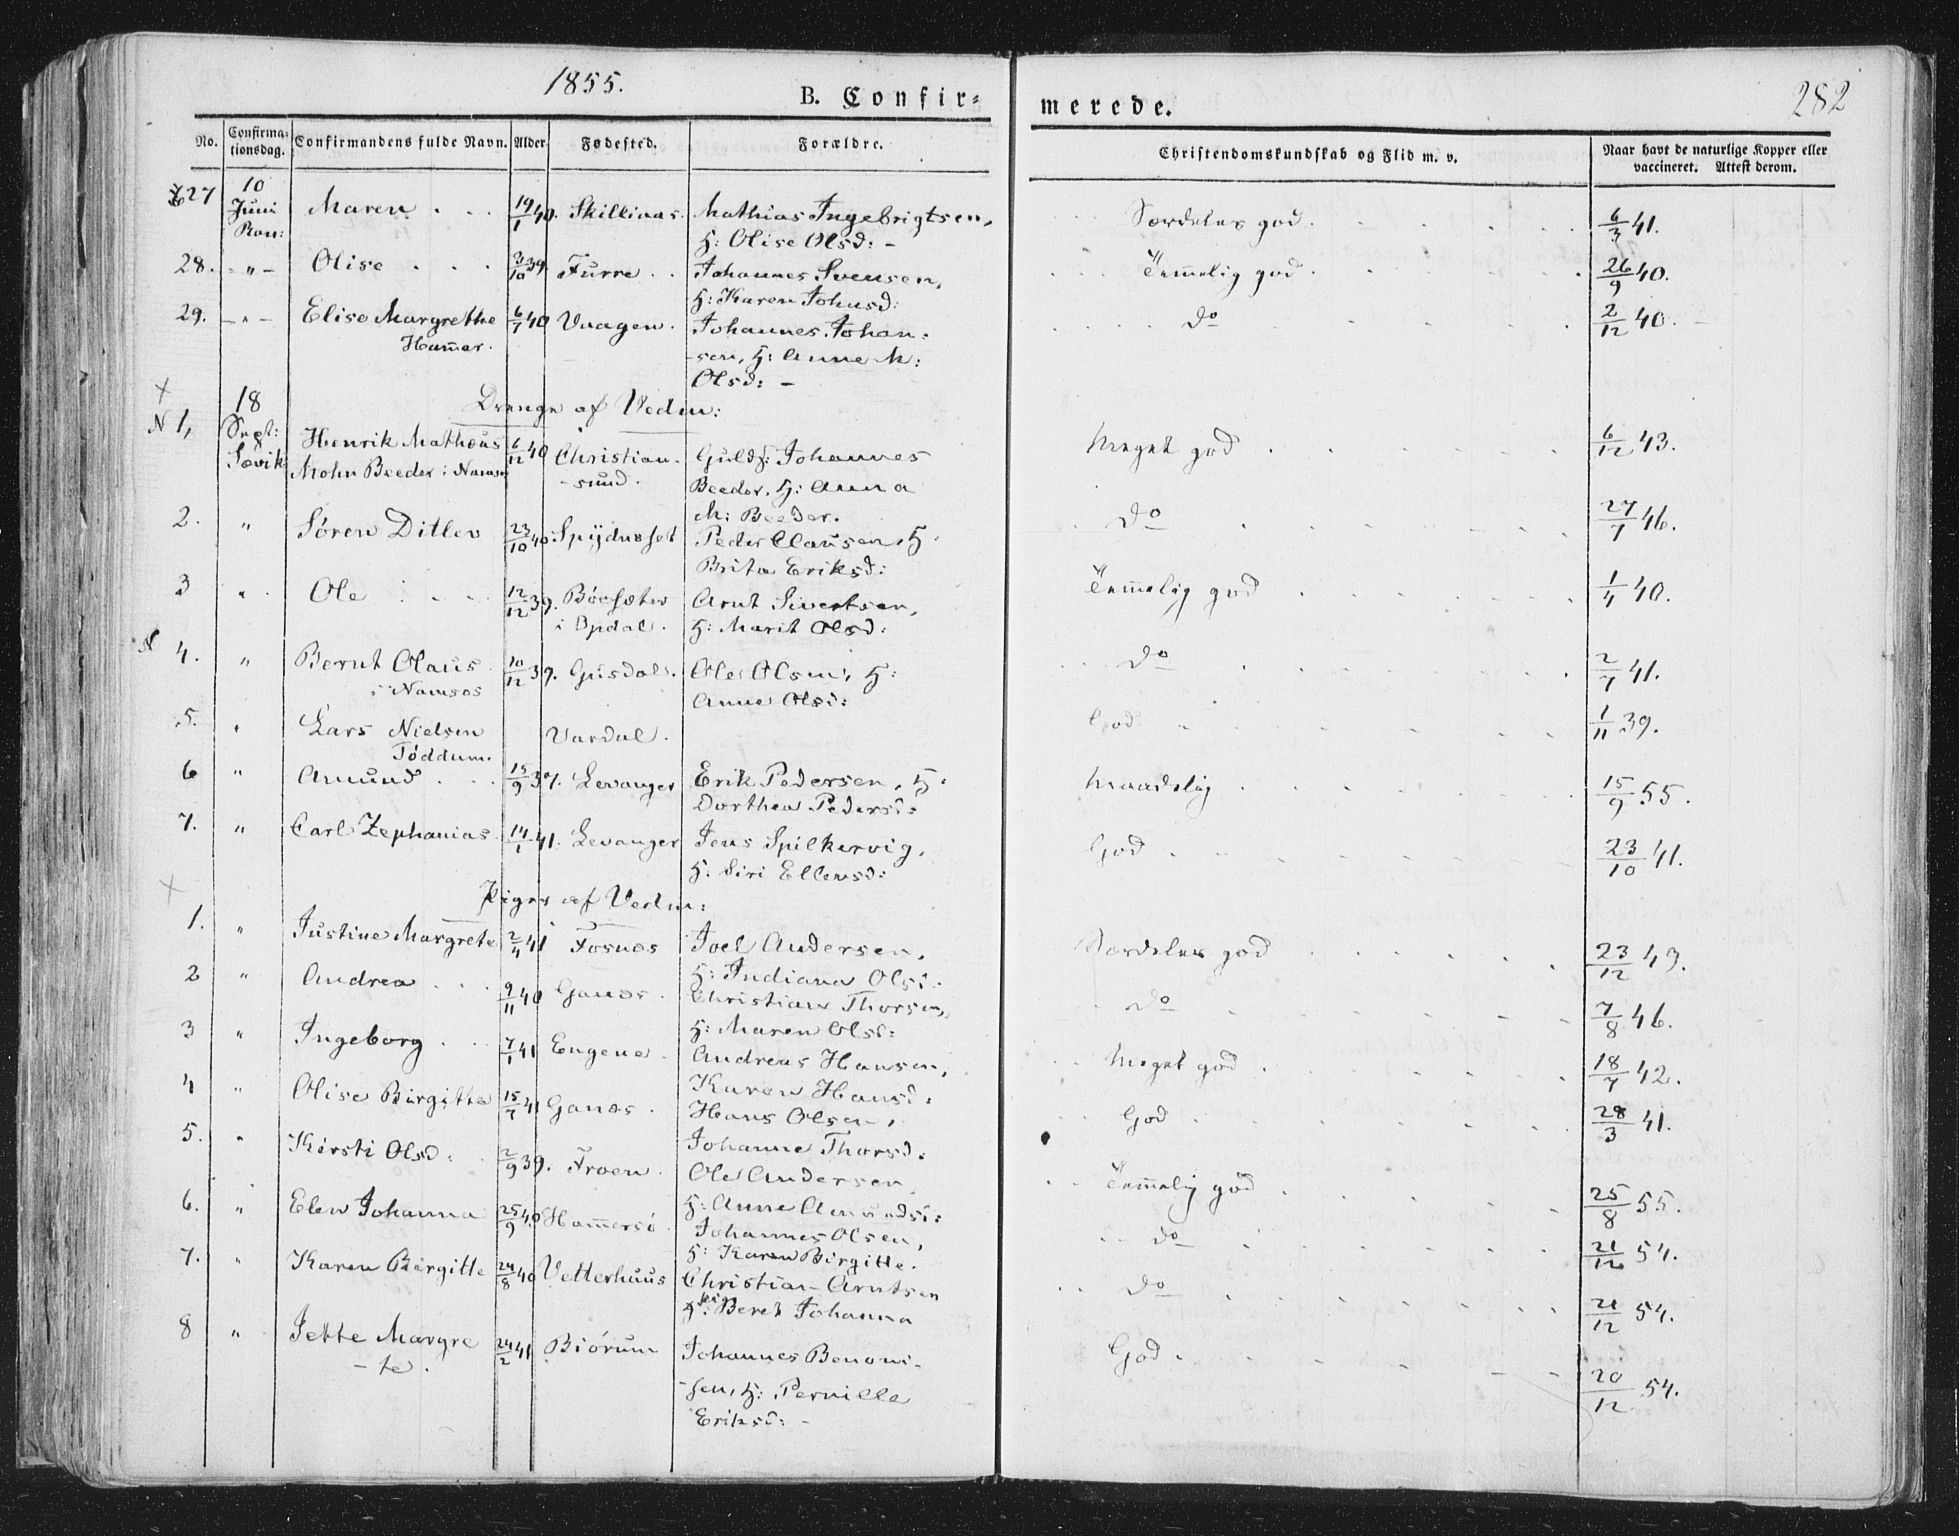 1855.
B. Confir-
merede.
282
No. Confirma-tionsdag. Confirmandens fulde Navn. Alder. Fødested. Forældre. Christendomskundskab og Flid m. v. Naar havt de naturlige Kopper eller vaccineret. Attest derom.
27 10 Juni Ran: Maren 19/1 40. Skillinas. Mathias Ingebrigtsen, Særdeles god. 6/3 41.
H: Olise Olsd: -
28. - " - Olise 3/10 39. Furre Johannes Svensen, Temmelig god. 26/9 40.
H: Karen Johnsd:
29. - " - Elise Margrethe 6/7 40 Vaagen. Johannes Johan- do 2/12 40.
Hamer. -sen, H: Anne M:
Olsd: -
Drenge af Vedm:
N 1, 18 Sept: Sævik Henrik Mathæus 6/12 40 Christian- Guldf: Johannes Meget god 6/12 43.
Mohn Beeder i Namsos -sund. Beeder, H: Anna
M: Beeder.
2. " Søren Ditlev 23/10 40 Spydnesset Peder Clausen, H: do 27/7 46.
Brita Eriksd:
3 " Ole 12/12 39. Böesæter Arnt Sivertsen, Temmelig god 1/4 40.
i Opdal. H: Marit Olsd:
4. " Bernt Olaus 10/12 39. Gusdal. Ole Olsen, H: do 2/7 41.
i Namsos Anne Olsd:
5. " Lars Nielsen Vardal. God 1/11 39.
Töddum.
6 " Amund 15/9 37. Levanger Erik Pedersen, H: Maadelig 15/9 55.
Dorthea Pedersd:
7. " Carl Zephanias 14/1 41. Levanger Jens Spilkervig, God 23/10 41.
H. Siri Ellensd:
Piger af Vedm:
1. " Justine Margrete 2/4 41 Fosnæs Joel Andersen, Særdeles god 23/12 43.
H: Indiana Olsd:
2 " Andrea 9/11 40 Ganæs. Christian Thorsen, do 7/8 46.
H: Maren Olsd:
3 " Ingeborg 7/1 41 Engene. Andreas Hansen, Meget god 18/7 42.
Karen Hansd:
4 " Olise Birgitte 15/7 41 Ganæs. Hans Olsen, God 28/3 41.
Johanne Thorsd:
5. " Kirsti Olsd: 2/9 39. Froen. Ole Andersen, Temmelig god 25/8 55.
H: Anne Amundsd:
6. " Elen Johanna 25/9 40 Hammersö Johannes Olsen, do 21/12 54.
H: Karen Birgitte.
7. " Karen Birgitte 24/8 40 Vetterhuus Christian Arntsen do 21/12 54.
H: Beret Johanna
8 " Jette Margre 24/2 41 Biörum Johannes Benoni- God. 20/12 54.
-te. -sen, H: Pernille
Eriksd: -